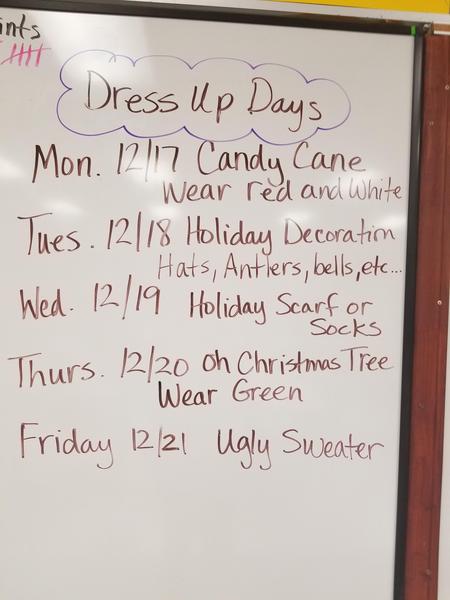 ints
Dress Up Days
Mon. 12/17 Candy Cane
Wear red and White
Tues. 12/18 Holiday Decoration
Hats, Antlers, bells, etc...
Wed. 12/19 Holiday Scarf or
Socks
Thurs. 12/20 Oh Christmas Tree
Wear Green
Friday 12/21 Ugly Sweater